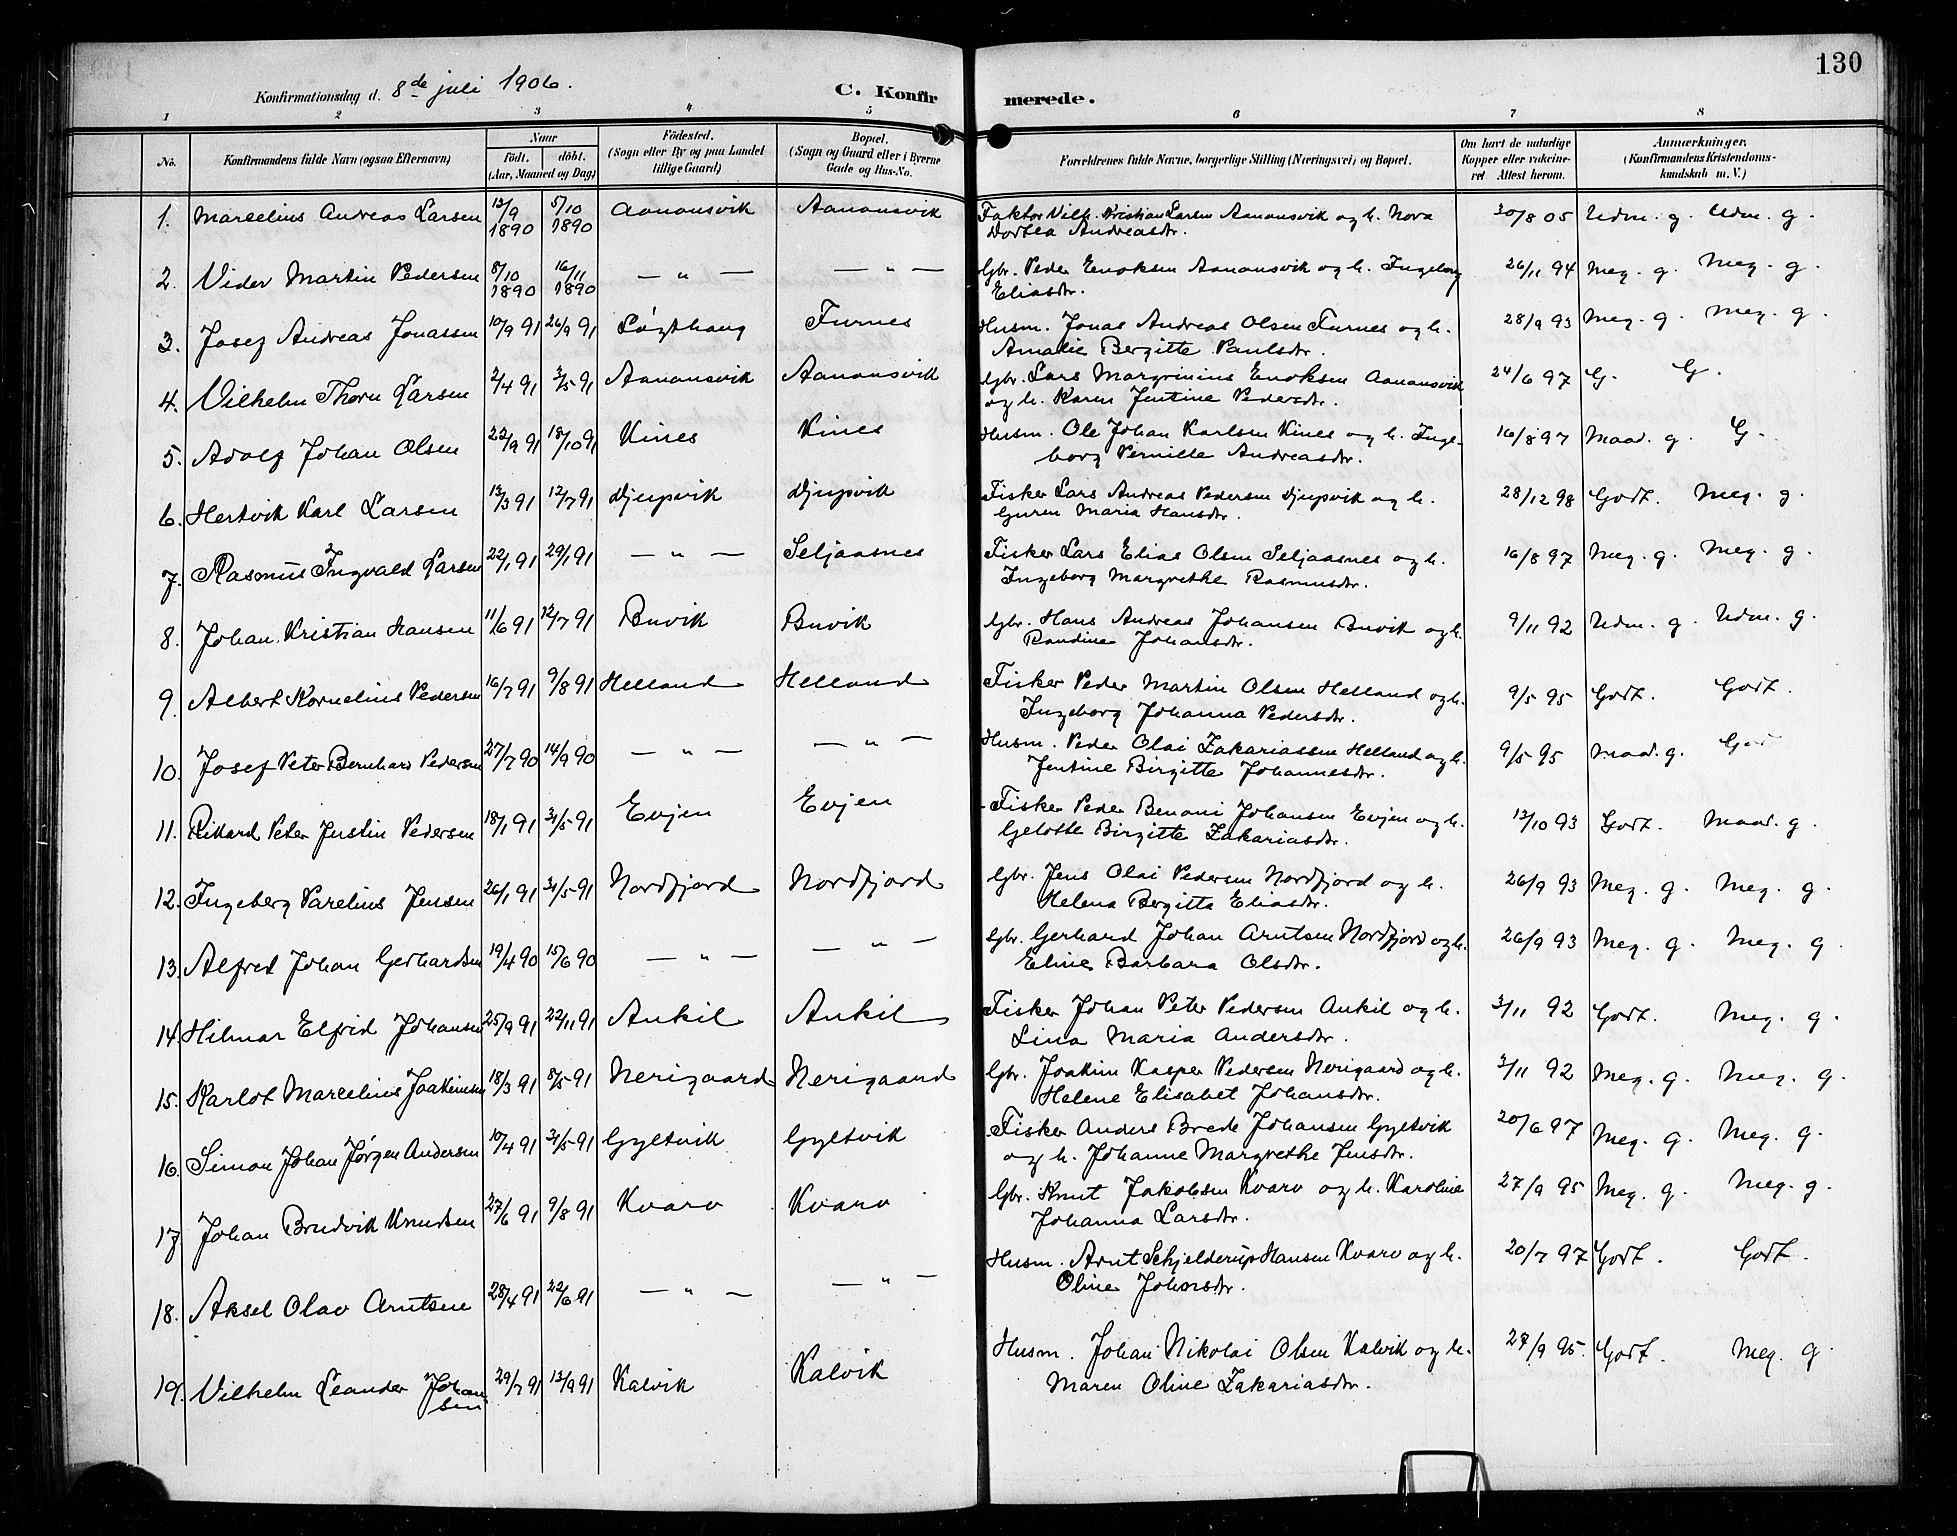 130
Konfirmationsdag d. 8de juli 1906.
C. Konfirmerede.
1 2 3 4 5 6 7 8
No. Konfirmandens fulde Navn (ogsaa Efternavn) Naar födt. döbt. (Aar, Maaned og Dag) Födested. (Sogn eller By og paa Landet tillige Gaard) Bopæl. (Sogn og Gaard eller i Byerne Gade og Hus-No. Forældrenes fulde Navne, borgerlige Stilling (Næringsvei) og Bopæl. Om havt de naturlige Kopper eller vakcineret Attest herom. Anmærkninger. (Konfirmandens Kristendomskundskab m. V.)
1. Marcelius Andreas Larsen 13/9 1890 5/10 1890 Aanonsvik Aanonsvik Faktor Vilh. Kristian Larsen Aanonsvik og h. Nora 30/8 05 Udm. g. Udm. g.
Dortea Andreasdtr.
2. Vider Martin Pedersen 8/10 1890 16/11 1890 — " — — " — Gbr. Peder Enoksen Aanonsvik og h. Ingeborg 26/11 94 Meg. g. Meg. g.
Eliasdtr.
3. Josef Andreas Jonassen 10/9 91 26/9 91 Løgthaug Furnes Husm. Jonas Andreas Olsen Furnes og h. 28/9 93 Meg. g. Meg. g.
Amalie Bergitte Paulsdtr.
4. Vilhelm Thorn Larsen 2/4 91 3/5 91 Aanonsvik Aanonsvik Gbr. Lars Margrinius Enoksen Aanonsvik 24/6 97 G. G.
og h. Karen Jentine Pedersdtr.
5. Adolf Johan Olsen 22/9 91 18/10 91 Kines Kines Husm. Ole Johan Karlsen Kines og h. Inge- 16/8 97 Maad. g. G.
borg Pernille Andreasdtr.
6. Hertvik Karl Larsen 13/3 91 12/7 91 Djupvik Djupvik Fisker Lars Andreas Pedersen Djupvik og h. 28/12 98 Godt. Meg. g.
Guren Maria Hansdtr.
7. Rasmus Ingvald Larsen 22/1 91 29/1 91 — " — Seljaasnes Fisker Lars Elias Olsen Seljaasnes og h. 16/8 97 Meg. g. Meg. g.
Ingeborg Margrethe Rasmusdtr.
8. Johan Kristian Hansen 11/6 91 12/7 91 Buvik Buvik Gbr. Hans Andreas Johansen Buvik og h. 9/11 92 Udm. g. Udm. g.
Randine Johansdtr.
9. Albert Kornelius Pedersen 16/7 91 9/8 91 Helland Helland Fisker Peder Martin Olsen Helland og h. 9/5 95 Godt. Godt.
Ingeborg Johanna Pedersdtr.
10. Josef Peter Bernhard Pedersen 27/7 90 14/9 90 — " — — " — Husm. Peder Olai Zakariassen Helland og h. 9/5 95 Maad. g. Godt
Jentine Birgitte Johannesdtr.
11. Rikard Peter Justin Pedersen 18/1 91 31/5 91 Evjen Evjen Fisker Peder Benoni Johansen Evjen og h. 13/10 93 Godt. Maad. g.
Gelotte Birgitte Zakariasdtr.
12. Ingeberg Parelius Jensen 26/1 91 31/5 91 Nordfjord Nordfjord Gbr. Jens Olai Pedersen Nordfjord og h. 26/9 93 Meg. g. Meg. g.
Helena Bergitta Eliasdtr.
13. Alfred Johan Gerhardsen 19/4 90 15/6 90 — " — — " — Gbr. Gerhard Johan Arntsen Nordfjord og h. 26/9 93 Meg. g. Meg. g.
Eline Barbara Olsdtr.
14. Hilmar Elfrid Johansen 25/9 91 22/11 91 Ankil Ankil Fisker Johan Peter Pedersen Ankil og h. 3/11 92 Godt. Meg. g.
Lina Maria Andersdtr.
15. Karlot Marcelius Joakimsen 18/3 91 8/5 91 Nerigaard Nerigaard Gbr. Joakim Kasper Pedersen Nerigaard og h. 3/11 92 Meg. g. Meg. g.
Helene Elisabet Johansdtr.
16. Simon Johan Jørgen Andersen 10/4 91 31/5 91 Gyltvik Gyltvik Fisker Anders Brede Johansen Gyltvik 20/6 97 Meg. g. Meg. g.
og h. Johanne Margrethe Jensdtr.
17. Johan Brudvik Knudsen 27/6 91 9/8 91 Kvarv Kvarv Gbr. Knut Jakobsen Kvarv og h. Karoline 27/9 95 Meg. g. Meg. g.
Johanna Larsdtr.
18. Aksel Olav Arntsen 28/4 91 22/6 91 — " — — " — Husm. Arnt Schjelderup Hansen Kvarv og h. 20/7 97 Godt. Godt.
Oline Johnsdtr.
19. Vilhelm Leander Johansen 29/7 91 13/9 91 Kalvik Kalvik Husm. Johan Nikolai Olsen Kalvik og h. 27/9 95. Godt. Meg. g.
Maren Oline Zakariasdtr.